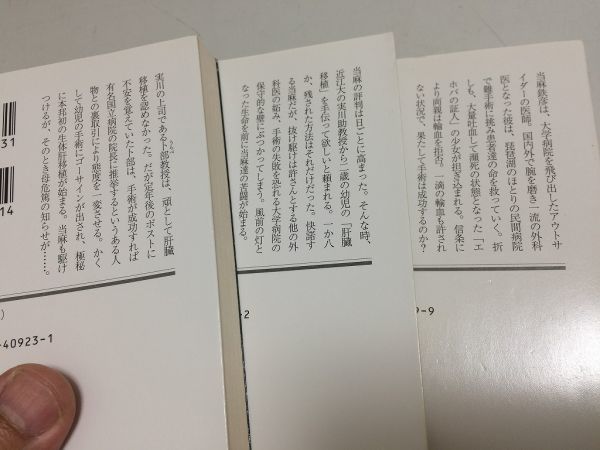 当麻鉄彦は、大学病院を飛び出したアウトサ
イダーの医師。国内外で腕を磨き一流の外科
医となった彼は、琵琶湖のほとりの民間病院
で難手術に挑み患者達の命を救っていく。折
しも、大量吐血して瀕死の状態となった「エ
ホバの証人」の少女が担ぎ込まれる。信条に
より両親は輸血を拒否。一滴の輸血も許され
ない状況で、果たして手術は成功するのか?
9-9
当麻の評判は日ごとに高まった。そんな時、
近江大の実川助教授から二歳の幼児の「肝臓
移植」を手伝って欲しいと頼まれる。一か八
か、残された方法はそれだけだった。快諾す
る当麻だが、抜け駆けは許さんとする他の外
科医の妬み、手術の失敗を恐れる大学病院の
保守的な壁にぶつかってしまう。風前の灯と
なった生命を前に当麻達の苦闘が始まる。
-2
実川の上司である卜部教授は、頑として肝臓
うらべ
移植を認めなかった。だが定年後のポストに
不安を覚えていた卜部は、手術が成功すれば
有名国立病院の院長に推挙するというある人
物との裏取引により態度を一変させる。かく
して幼児の手術にゴーサインが出され、極秘
に本邦初の生体肝移植が始まる。当麻も駆け
つけるが、そのとき母危篤の知らせが……。
31
14
)
-40923-1